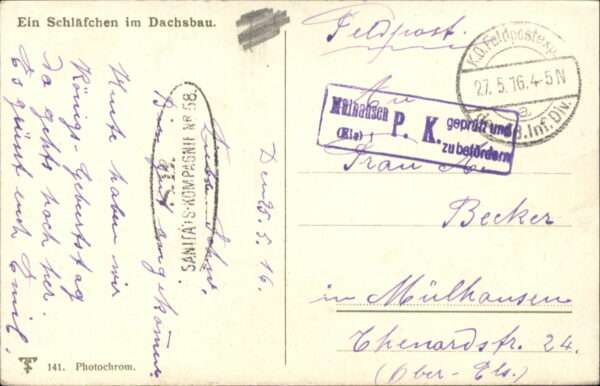 Ein Schläfchen im Dachsbau.
Feldpost.
K.D. Feldpostexp.
27.5.16. 4-5N
8. Inf. Div.
Mülhausen
(Els)
P. K.
geprüft und
zu befördern
An
Frau
Becker
in Mülhausen
Thenardstr. 24.
(Ober-Els.)
SANITÄTS-KOMPAGNIE No 58.
Den 25. 5. 16.
Bin gut angekommen.
Heute haben wir
Königs-Geburtstag
da gehts hoch her.
Es grüsst euch Emil.
141. Photochrom.